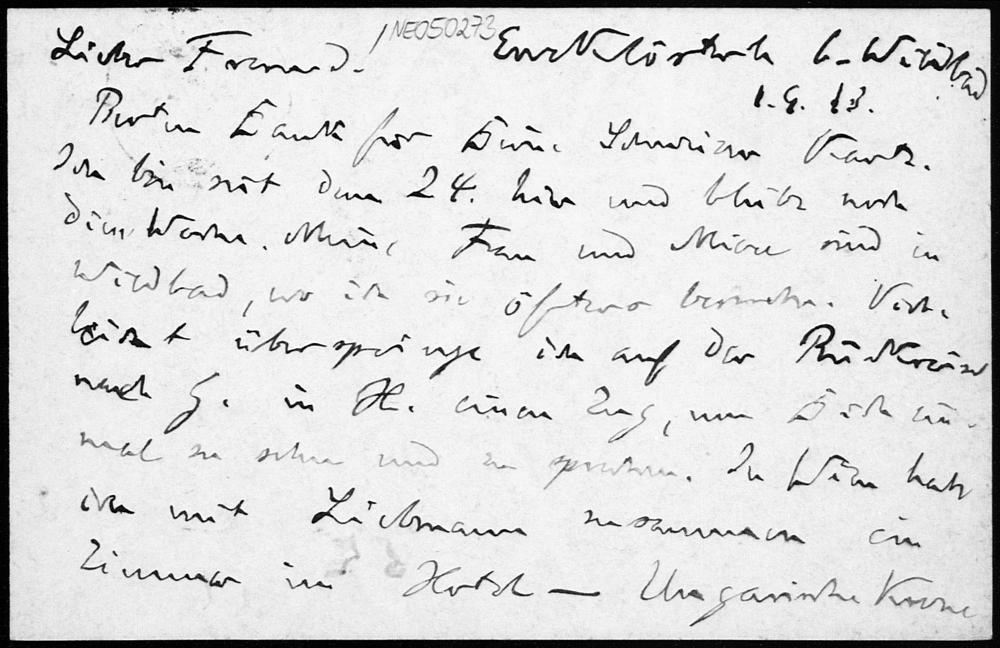 NE050273
Lieber Freund. Enzklösterle b. Wildbad
1. 9. 13.
Besten Dank für Deine Schweizer Karte.
Ich bin seit dem 24. hier und bleibe noch
diese Woche. Meine Frau und sind in
Wildbad, wo ich sie öfters besuche. Viel-
leicht überspringe ich auf der Rückreise
nach G. in H. einen Zug, um Dich ein-
mal zu sehen und zu sprechen. In Wien habe
ich mit Liebmann zusammen ein
Zimmer im Hotel — Ungarische Krone